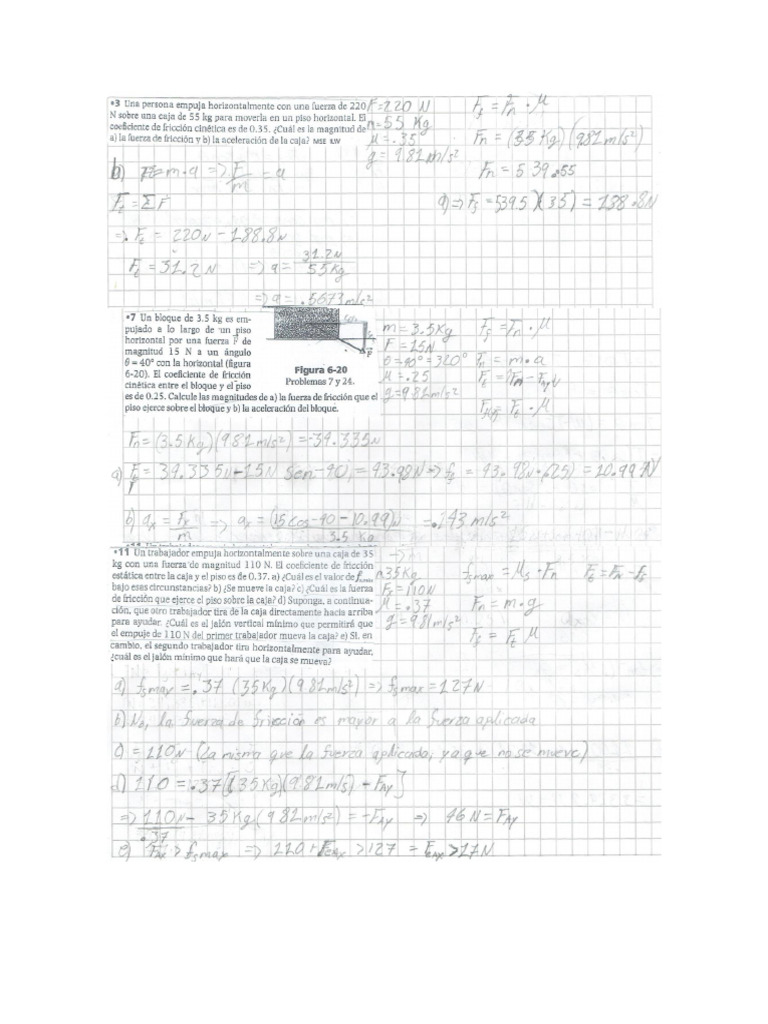 •3 Una persona empuja horizontalmente con una fuerza de 220
N sobre una caja de 55 kg para moverla en un piso horizontal. El
coeficiente de fricción cinética es de 0.35. ¿Cuál es la magnitud de
a) la fuerza de fricción y b) la aceleración de la caja? MSE ILW
F=220 N
m=55 Kg
μ=.35
g=9.81m/s²
Ff = Fn · μ
Fn = (55Kg)(9.81m/s²)
Fn = 539.55
a) => Fs = 539.5)(.35) = 188.8N
b) F= m·a => F/m = a
Ft = ΣF
=> Ft = 220N - 188.8N
Ft = 31.2N => a = 31.2N/55Kg
=> a = .5673m/s²
•7 Un bloque de 3.5 kg es em-
pujado a lo largo de un piso
horizontal por una fuerza F de
magnitud 15 N a un ángulo
θ = 40° con la horizontal (figura
6-20). El coeficiente de fricción
cinética entre el bloque y el piso
es de 0.25. Calcule las magnitudes de a) la fuerza de fricción que el
piso ejerce sobre el bloque y b) la aceleración del bloque.
Figura 6-20
Problemas 7 y 24.
m=3.5Kg
F=15N
θ=40°=320°
μ=.25
g=9.81m/s²
Ff = Fn · μ
Fn = m·a
Fn=(3.5Kg)(9.81m/s²)=34.335N
a) Ft = 34.335N-15N Sen-40) = 43.98N => fs = 43.98N·(.25) = 10.99N
b) ax = Fx/m => ax = (15cos-40-10.99)N/3.5 Kg = .143 m/s²
•11 Un trabajador empuja horizontalmente sobre una caja de 35
kg con una fuerza de magnitud 110 N. El coeficiente de fricción
estática entre la caja y el piso es de 0.37. a) ¿Cuál es el valor de fs,máx
bajo esas circunstancias? b) ¿Se mueve la caja? c) ¿Cuál es la fuerza
de fricción que ejerce el piso sobre la caja? d) Suponga, a continua-
ción, que otro trabajador tira de la caja directamente hacia arriba
para ayudar. ¿Cuál es el jalón vertical mínimo que permitirá que
el empuje de 110 N del primer trabajador mueva la caja? e) Si, en
cambio, el segundo trabajador tira horizontalmente para ayudar,
¿cuál es el jalón mínimo que hará que la caja se mueva?
m=35Kg
F=110N
μ=.37
g=9.81m/s²
fsmax = μs · Fn
Fn = m·g
a) fsmax = .37 (35Kg)(9.81m/s²) => fsmax = 127N
b) No, la fuerza de fricción es mayor a la fuerza aplicada
c) = 110N (la misma que la fuerza aplicada, ya que no se mueve)
d) 110 = .37[(35Kg)(9.81m/s²) - FAy]
=> 110N/.37 - 35Kg(9.81m/s²) = -FAy => 46N = FAy
e) FAx > fsmax => 110 + FCAx > 127 = FCAx > 17N